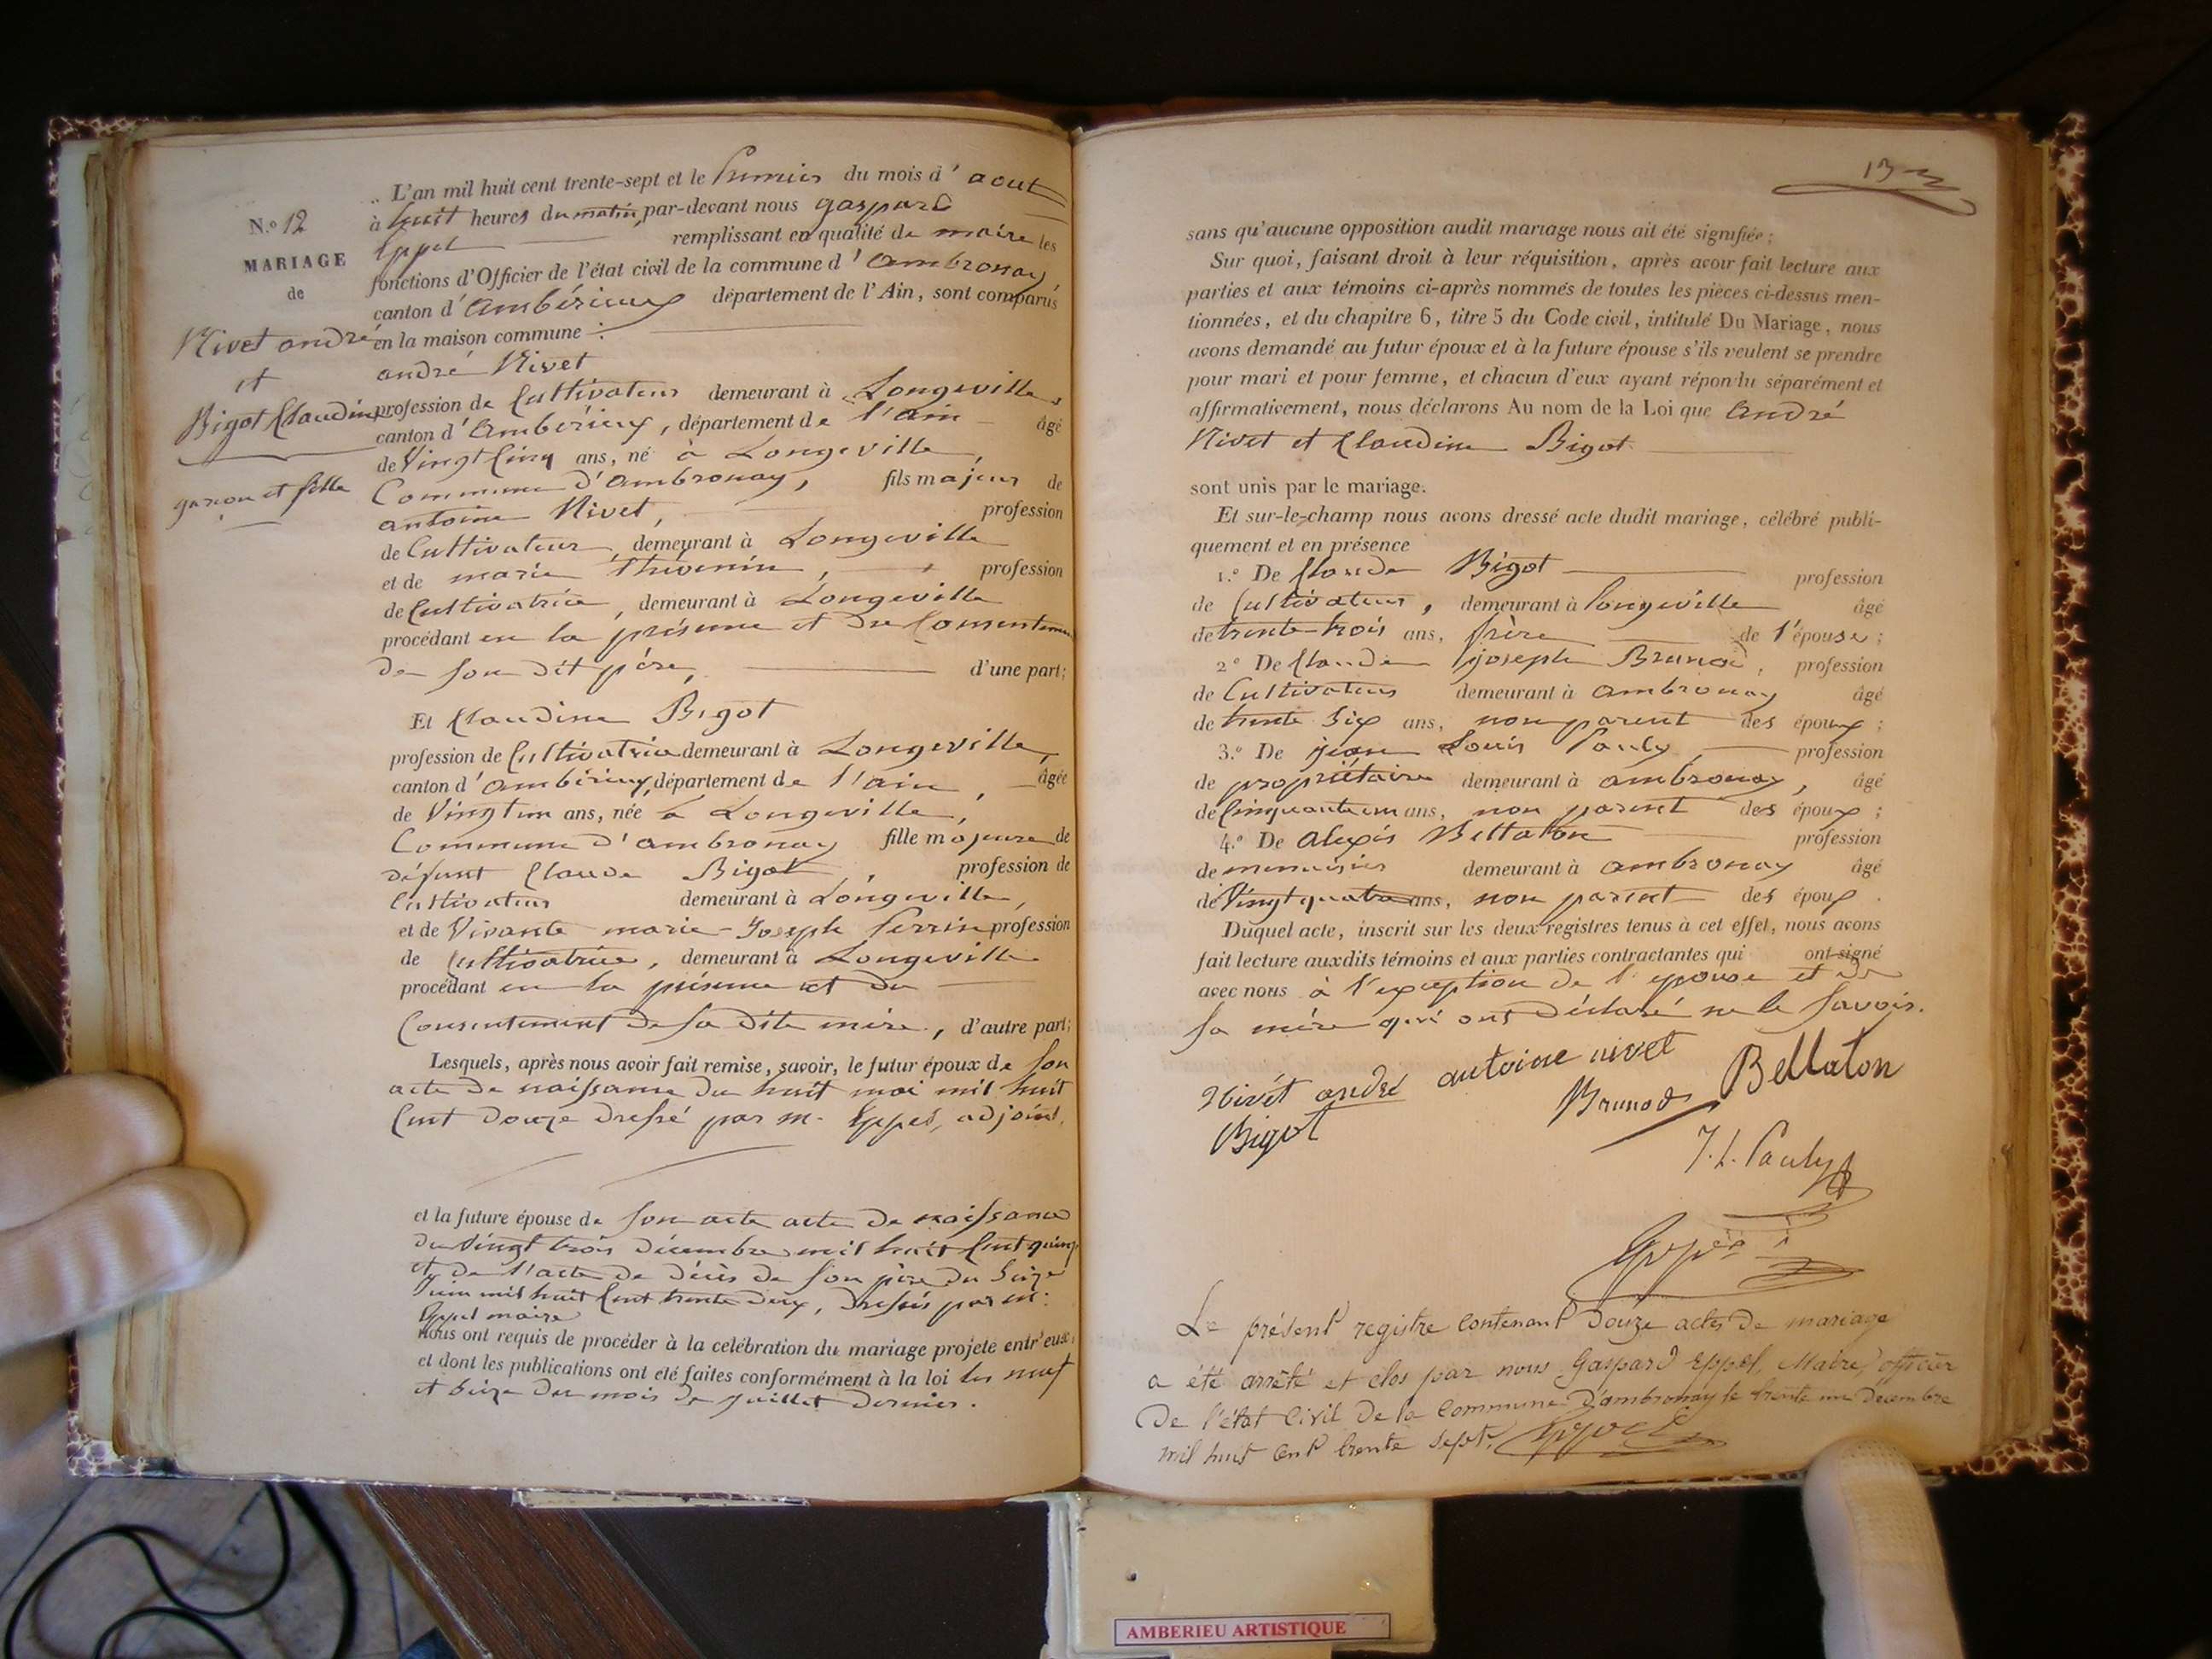 N.o 12
MARIAGE
de
Nivet andré
et
Bigot Claudine
garçon et fille
L'an mil huit cent trente-sept et le premier du mois d'aout
à huit heures du matin, par-devant nous gaspard
Eppel remplissant en qualité de maire les
fonctions d'Officier de l'état civil de la commune d'ambronay
canton d'ambérieux département de l'Ain, sont comparus
en la maison commune :
andré Nivet
profession de Cultivateur demeurant à Longeville,
canton d'ambérieux, département de l'ain âgé
de Vingt Cinq ans, né à Longeville,
Commune d'ambronay, fils majeur de
antoine Nivet, profession
de Cultivateur, demeurant à Longeville
et de marie thevenin, profession
de Cultivatrice, demeurant à Longeville
procédant en la présence et du Consentement
de son dit père, d'une part;
Et Claudine Bigot
profession de Cultivatrice demeurant à Longeville,
canton d'ambérieux, département de l'ain, âgée
de Vingt un ans, née à Longeville,
Commune d'ambronay fille majeure de
défunt Claude Bigot, profession de
Cultivateur demeurant à Longeville,
et de Vivante marie-Joseph Perrin profession
de Cultivatrice, demeurant à Longeville
procédant en la présence et du
Consentement de sa dite mère, d'autre part;
Lesquels, après nous avoir fait remise, savoir, le futur époux de son
acte de naissance du huit mai mil huit
Cent douze dressé par m. Eppel, adjoint,
et la future épouse de son acte acte de naissance
du Vingt trois décembre mil huit Cent quinze
et de l'acte de décès de son père du Seize
Juin mil huit Cent trente deux, dressés par m:
Eppel maire
nous ont requis de procéder à la célébration du mariage projeté entr'eux,
et dont les publications ont été faites conformément à la loi les neuf
et Seize du mois de Juillet dernier.
13
sans qu'aucune opposition audit mariage nous ait été signifiée;
Sur quoi, faisant droit à leur réquisition, après avoir fait lecture aux
parties et aux témoins ci-après nommés de toutes les pièces ci-dessus men-
tionnées, et du chapitre 6, titre 5 du Code civil, intitulé Du Mariage, nous
avons demandé au futur époux et à la future épouse s'ils veulent se prendre
pour mari et pour femme, et chacun d'eux ayant répondu séparément et
affirmativement, nous déclarons Au nom de la Loi que andré
Nivet et Claudine Bigot
sont unis par le mariage.
Et sur-le-champ nous avons dressé acte dudit mariage, célébré publi-
quement et en présence
1.o De Claude Bigot profession
de Cultivateur, demeurant à longeville âgé
de trente-trois ans, frère de l'épouse;
2o De Claude joseph Brunod, profession
de Cultivateur demeurant à ambronay âgé
de trente Six ans, non parent des époux;
3.o De jean Louis Pauly profession
de propriétaire demeurant à ambronay, âgé
de Cinquante un ans, non parent des époux;
4.o De alexis Bellaton profession
de menuisier demeurant à ambronay âgé
de Vingt quatre ans, non parent des époux.
Duquel acte, inscrit sur les deux registres tenus à cet effet, nous avons
fait lecture auxdits témoins et aux parties contractantes qui ont signé
avec nous à l'exception de l'epouse et de
sa mère qui ont déclaré ne le Savoir.
Nivét andré antoine nivet Bellaton
Bigot Brunod
J. L. Pauly
Eppel
Le présent registre contenant Douze actes de mariage
a été arrêté et clos par nous Gaspard Eppel, Maire, officier
de l'état Civil de la Commune D'ambronay le trente un Décembre
mil huit Cent trente Sept. Eppel
AMBERIEU ARTISTIQUE